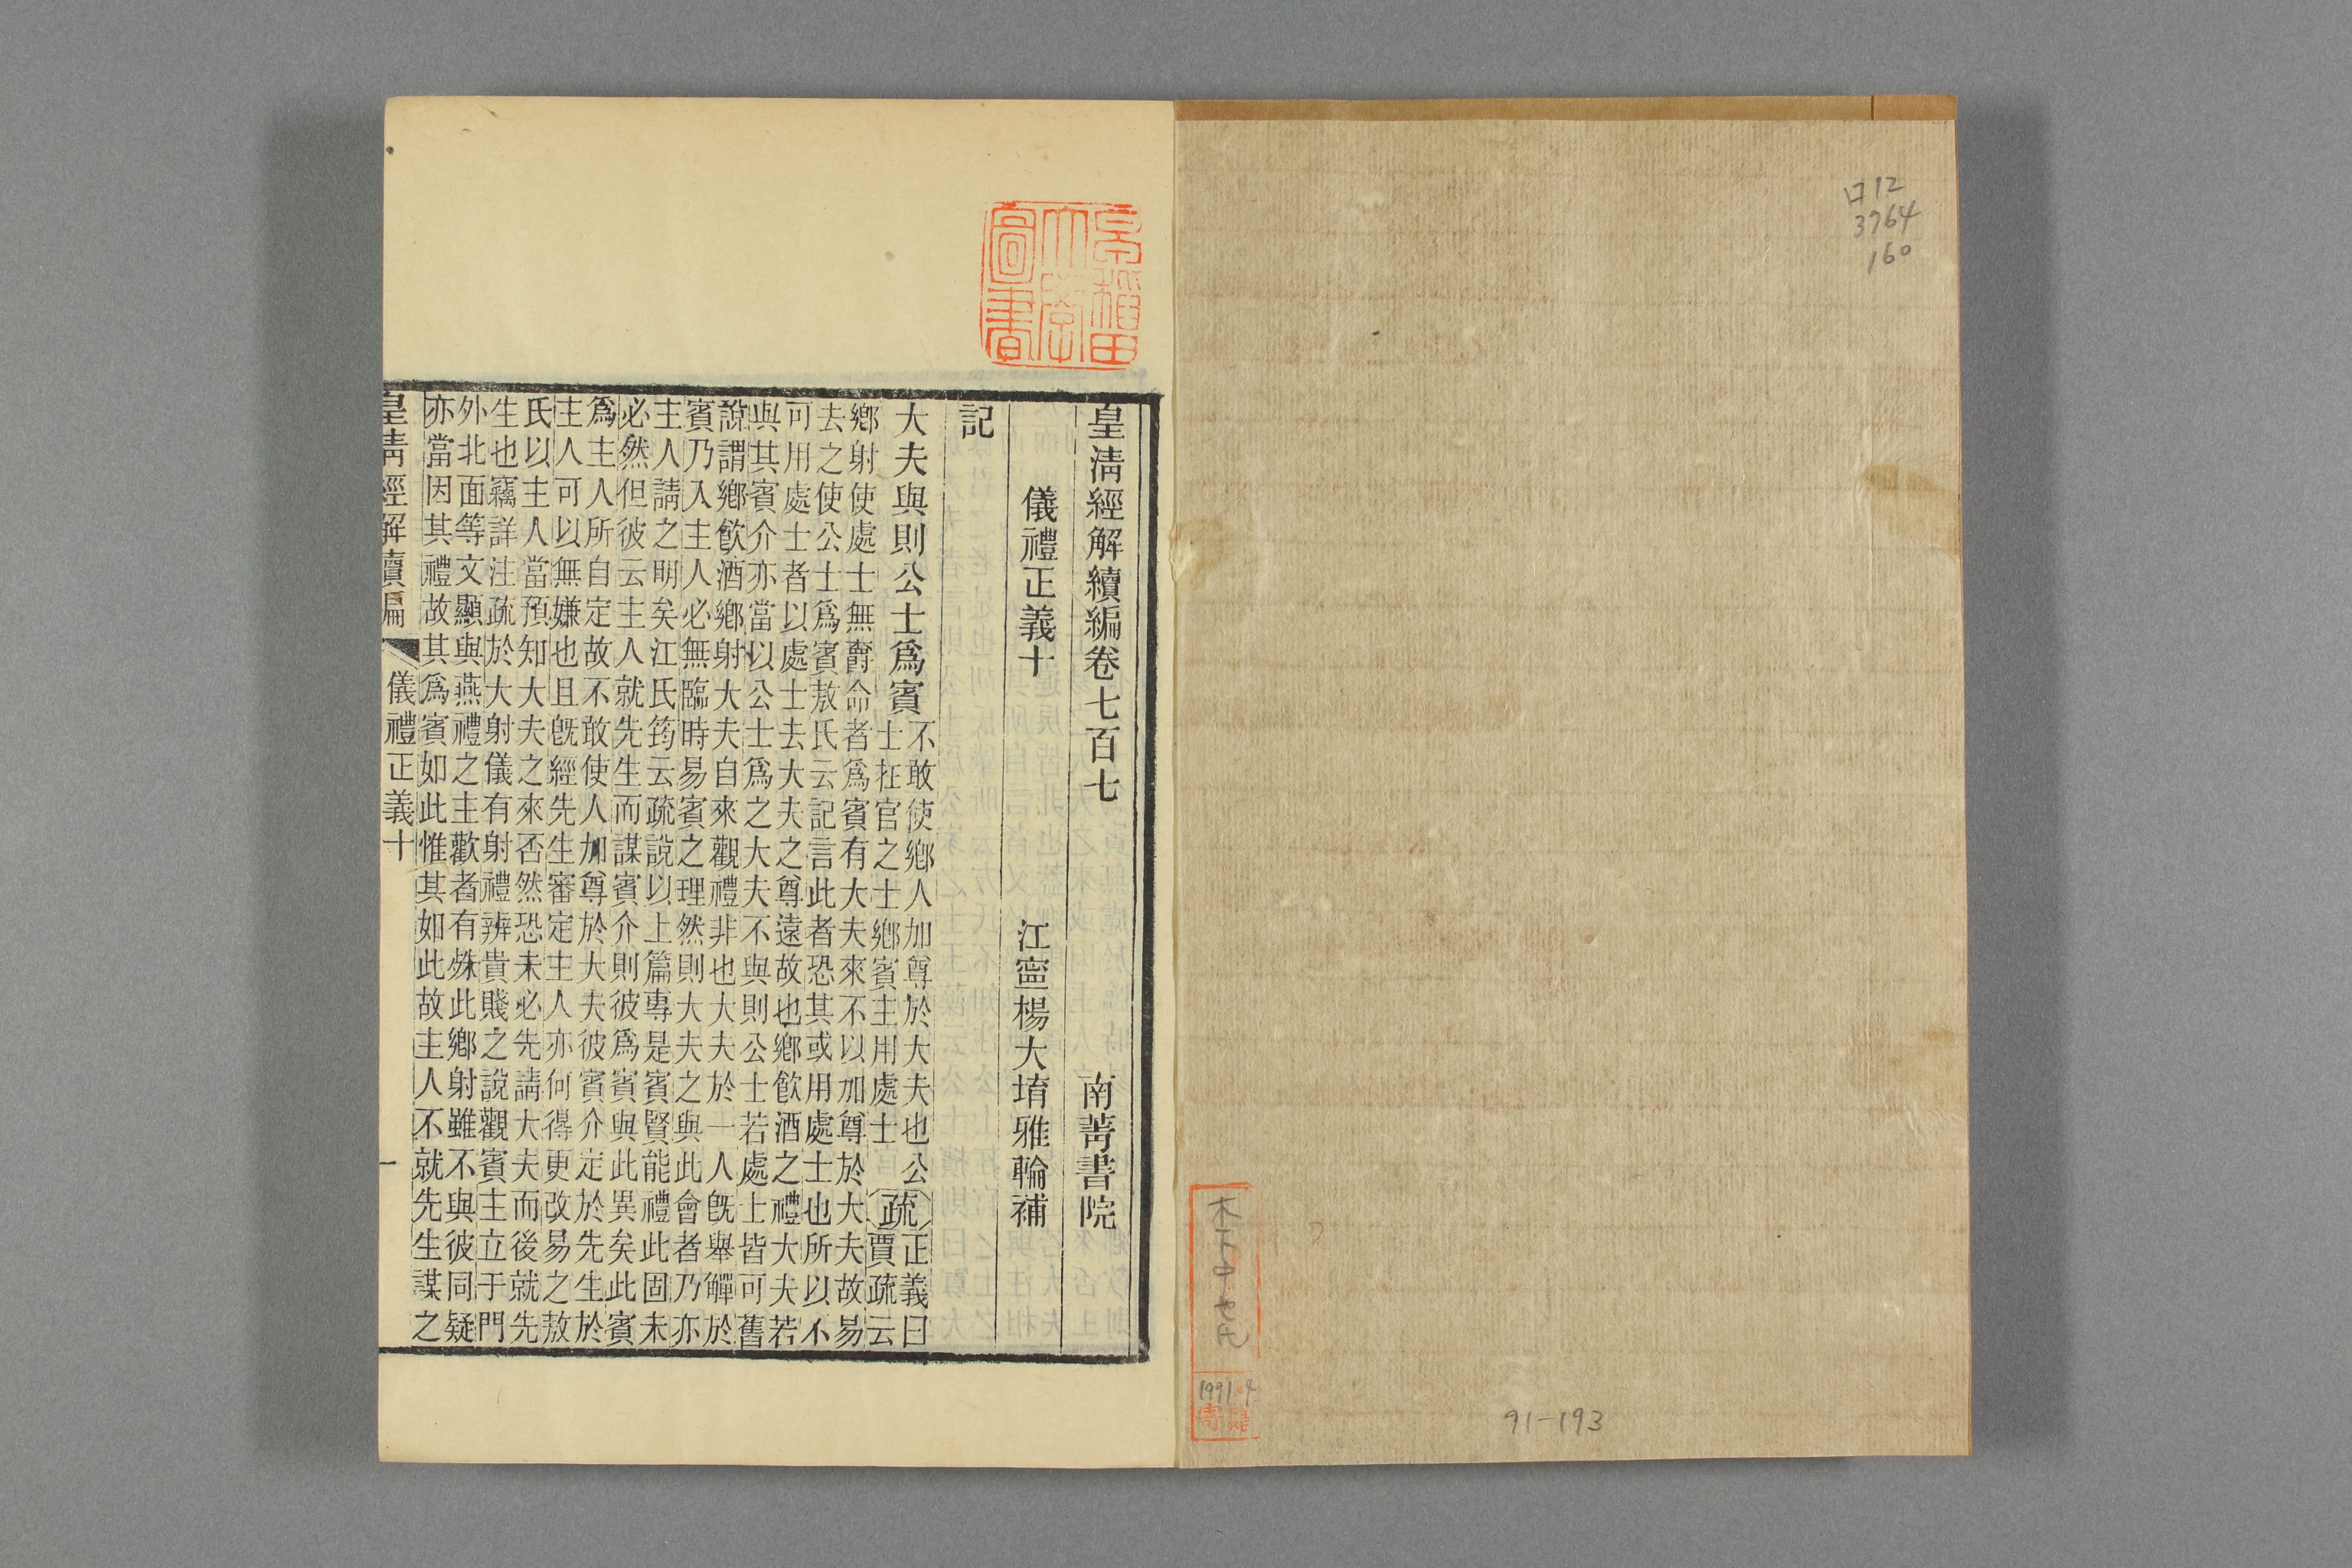 ロ12
3764
160
1991.4
寄贈
91-193
早稲田大學圖書
皇清經解續編卷七百七 南菁書院
儀禮正義十 江寧楊大堉雅輪補
記
大夫與則公士爲賓
不敢使鄉人加尊於大夫也公
士在官之士鄉賓主用處士
疏
正義曰
賈疏云
鄉射使處士無爵命者爲賓有大夫來不以加尊於大夫故易
去之使公士爲賓敖氏云記言此者恐其或用處士也所以不
可用處士者以處士去大夫之尊遠故也鄉飮酒之禮大夫若
與其賓介亦當以公士爲之大夫不與則公士若處士皆可舊
說謂鄉飮酒鄉射大夫自來觀禮非也大夫於一人旣舉觶於
賓乃入主人必無臨時易賓之理然則大夫之與此會者乃亦
主人請之明矣江氏筠云疏說以上篇專是賓賢能禮此固未
必然但彼云主人就先生而謀賓介則彼爲賓與此異矣此賓
爲主人所自定故不敢使人加尊於大夫彼賓介定於先生於
主人可以無嫌也且旣經先生審定主人亦何得更改易之敖
氏以主人當預知大夫之來否然恐未必先請大夫而後就先
生也竊詳注疏於大射儀有射禮辨貴賤之說觀賓主立于門
外北面等文顯與燕禮之主歡者有殊此鄉射雖不與彼同疑
亦當因其禮故其爲賓如此惟其如此故主人不就先生謀之
皇清經解續編 儀禮正義十 一